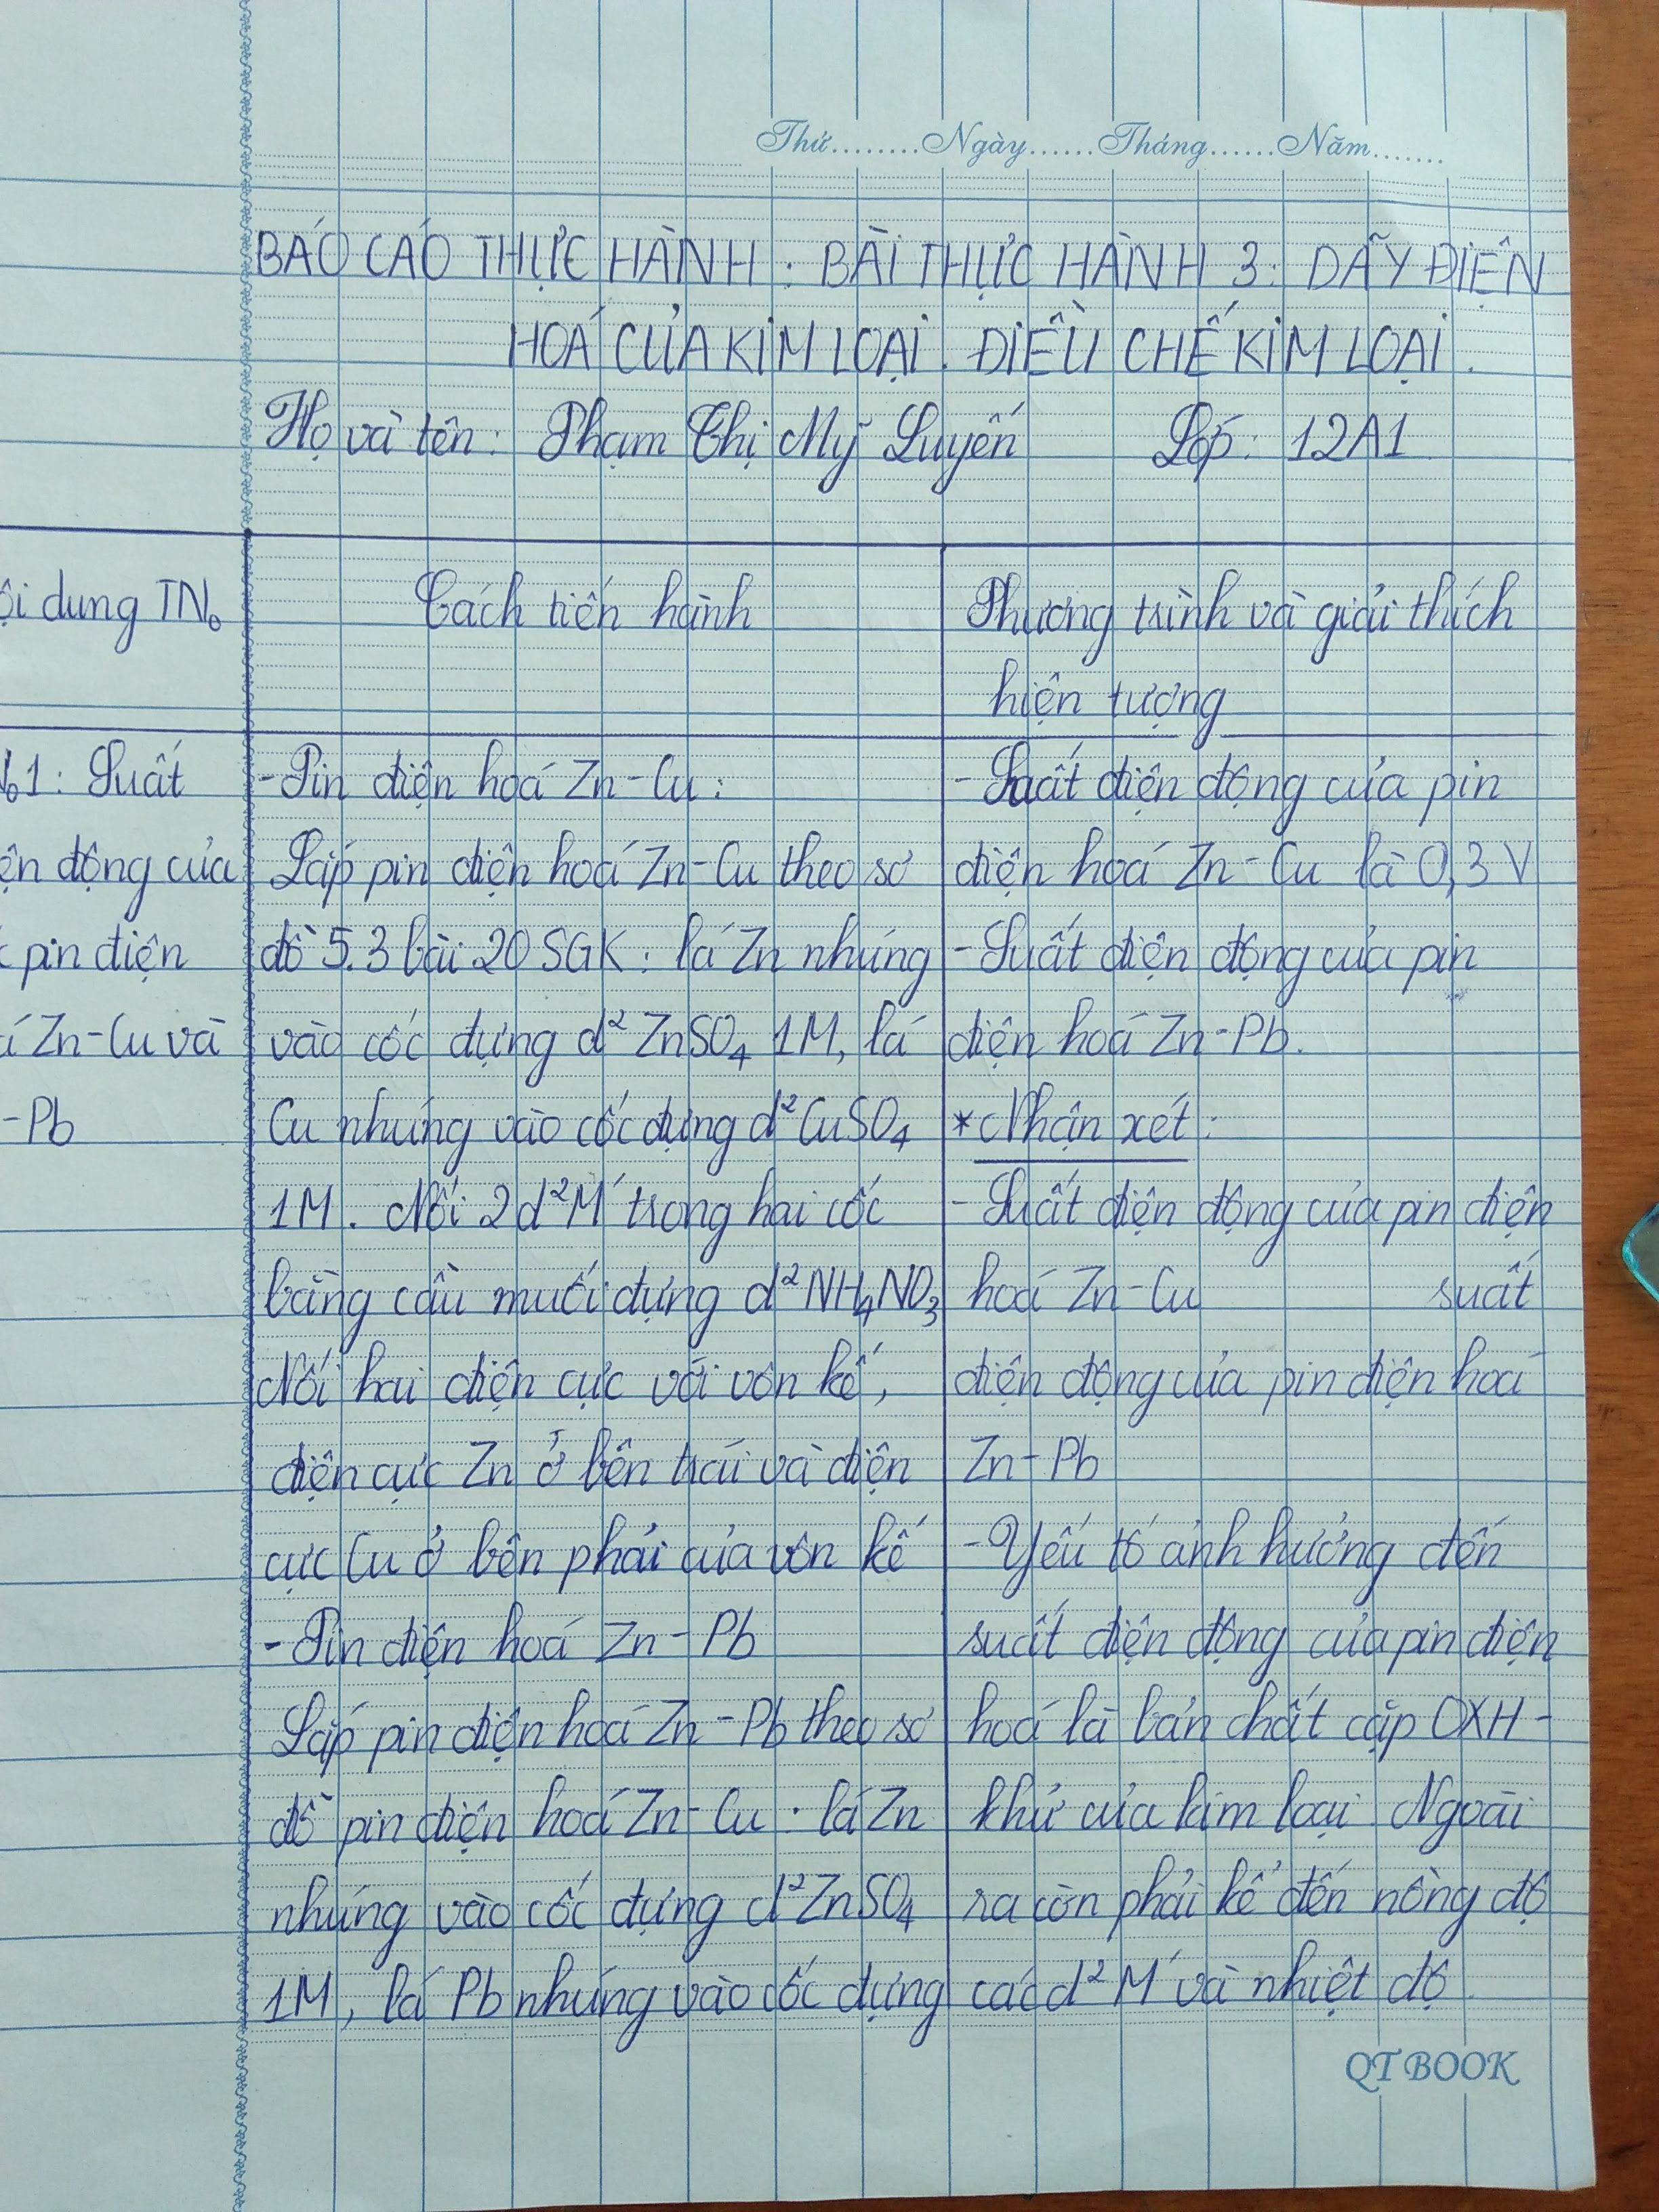 Thứ........Ngày......Tháng......Năm.......
BÁO CÁO THỰC HÀNH: BÀI THỰC HÀNH 3: DÃY ĐIỆN
HOÁ CỦA KIM LOẠI. ĐIỀU CHẾ KIM LOẠI.
Họ và tên: Phạm Thị Mỹ Luyến Lớp: 12A1
ội dung TNo
Cách tiến hành
Phương trình và giải thích
hiện tượng
No1: Suất
ện động của
pin điện
á Zn-Cu và
-Pb
- Pin điện hoá Zn-Cu:
Lắp pin điện hoá Zn-Cu theo sơ
đồ 5.3 bài 20 SGK: lá Zn nhúng
vào cốc đựng d² ZnSO₄ 1M, lá
Cu nhúng vào cốc đựng d² CuSO₄
1M. Nối 2 d² M' trong hai cốc
bằng cầu muối đựng d² NH₄NO₃
Nối hai điện cực với vôn kế,
điện cực Zn ở bên trái và điện
cực Cu ở bên phải của vôn kế
- Pin điện hoá Zn-Pb
Lắp pin điện hoá Zn-Pb theo sơ
đồ pin điện hoá Zn-Cu: lá Zn
nhúng vào cốc đựng d² ZnSO₄
1M, lá Pb nhúng vào cốc đựng
- Suất điện động của pin
điện hoá Zn-Cu là 0,3 V
- Suất điện động của pin
điện hoá Zn-Pb.
* Nhận xét:
- Suất điện động của pin điện
hoá Zn-Cu suất
điện động của pin điện hoá
Zn-Pb
- Yếu tố ảnh hưởng đến
suất điện động của pin điện
hoá là bản chất cặp OXH-
khử của kim loại. Ngoài
ra còn phải kể đến nồng độ
các d² M' và nhiệt độ.
QT BOOK